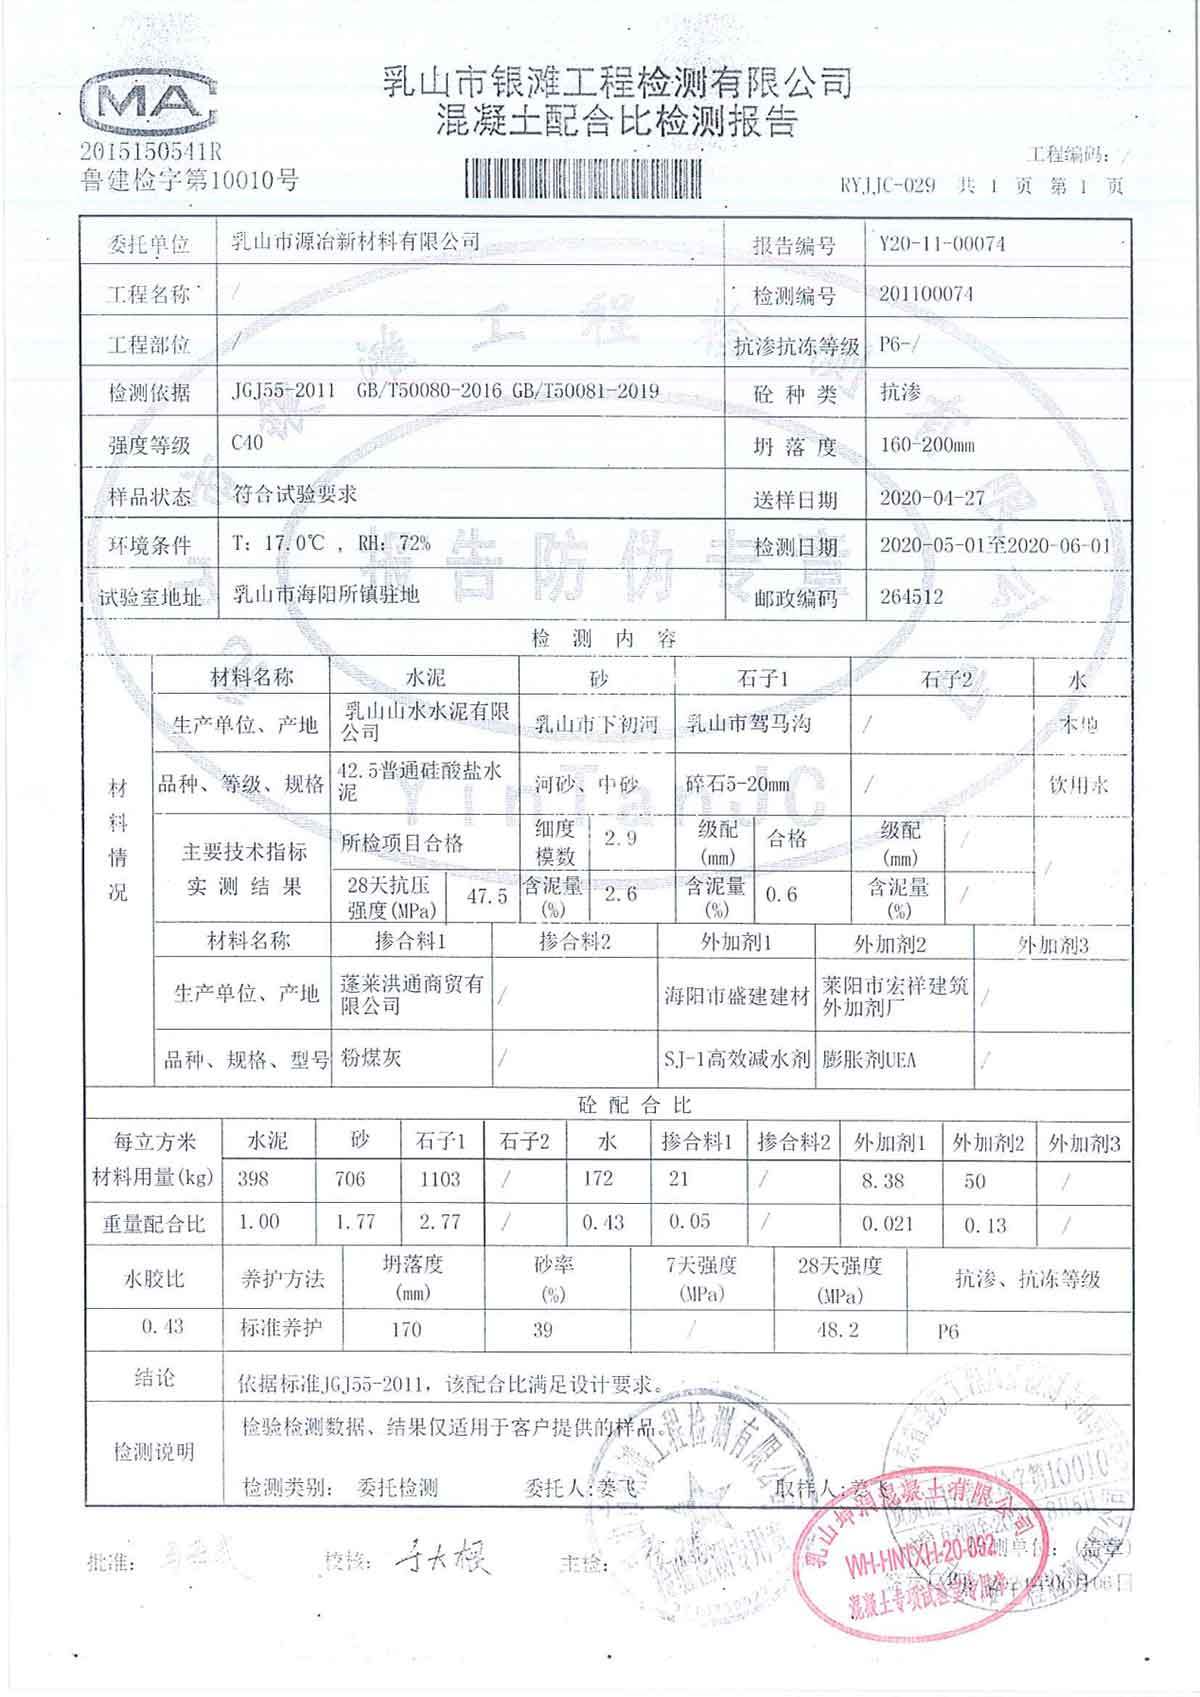 乳山市银滩工程检测有限公司
混凝土配合比检测报告
MA
2015150541R
鲁建检字第10010号
工程编码：/
RYJJC-029 共 1 页 第 1 页
委托单位 乳山市源冶新材料有限公司 报告编号 Y20-11-00074
工程名称 / 检测编号 201100074
工程部位 / 抗渗抗冻等级 P6-/
检测依据 JGJ55-2011 GB/T50080-2016 GB/T50081-2019 砼 种 类 抗渗
强度等级 C40 坍 落 度 160-200mm
样品状态 符合试验要求 送样日期 2020-04-27
环境条件 T：17.0℃ ，RH：72% 检测日期 2020-05-01至2020-06-01
试验室地址 乳山市海阳所镇驻地 邮政编码 264512
报告防伪专章
YinTanJC
检 测 内 容
材料情况
材料名称 水泥 砂 石子1 石子2 水
生产单位、产地 乳山山水水泥有限公司 乳山市下初河 乳山市驾马沟 / 本地
品种、等级、规格 42.5普通硅酸盐水泥 河砂、中砂 碎石5-20mm / 饮用水
主要技术指标 所检项目合格 细度模数 2.9 级配(mm) 合格 级配(mm) / /
实 测 结 果 28天抗压强度(MPa) 47.5 含泥量(%) 2.6 含泥量(%) 0.6 含泥量(%) /
材料名称 掺合料1 掺合料2 外加剂1 外加剂2 外加剂3
生产单位、产地 蓬莱洪通商贸有限公司 / 海阳市盛建建材 莱阳市宏祥建筑外加剂厂 /
品种、规格、型号 粉煤灰 / SJ-1高效减水剂 膨胀剂UEA /
砼 配 合 比
每立方米 水泥 砂 石子1 石子2 水 掺合料1 掺合料2 外加剂1 外加剂2 外加剂3
材料用量(kg) 398 706 1103 / 172 21 / 8.38 50 /
重量配合比 1.00 1.77 2.77 / 0.43 0.05 / 0.021 0.13 /
水胶比 养护方法 坍落度(mm) 砂率(%) 7天强度(MPa) 28天强度(MPa) 抗渗、抗冻等级
0.43 标准养护 170 39 / 48.2 P6
结论 依据标准JGJ55-2011，该配合比满足设计要求。
检测说明 检验检测数据、结果仅适用于客户提供的样品。
检测类别： 委托检测 委托人：姜飞 取样人：姜飞
批准： 校核：于大根 主检：
检测单位：(盖章)
乳山坤润混凝土有限公司
WH-HNTXH-20-002
混凝土专项试验室专用章